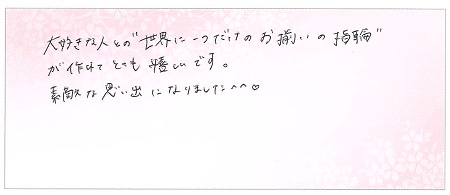 大好きな人との"世界に一つだけのお揃いの指輪"
が作れてとても嬉しいです。
素敵な思い出になりました^^♡